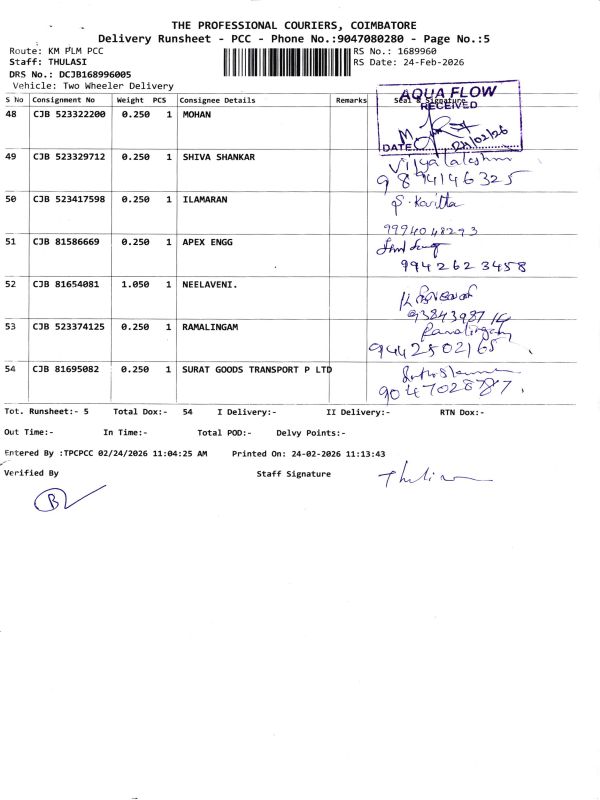 THE PROFESSIONAL COURIERS, COIMBATORE
Delivery Runsheet - PCC - Phone No.:9047080280 - Page No.:5
Route: KM PLM PCC
RS No.: 1689960
Staff: THULASI
RS Date: 24-Feb-2026
DRS No.: DCJB168996005
Vehicle: Two Wheeler Delivery
S No Consignment No Weight PCS Consignee Details Remarks Seal & Signature
48 CJB 523322200 0.250 1 MOHAN
AQUA FLOW
RECEIVED
DATE
49 CJB 523329712 0.250 1 SHIVA SHANKAR
Vijyalalakshmi
9894146325
50 CJB 523417598 0.250 1 ILAMARAN
S. Kavitha
9994048293
51 CJB 81586669 0.250 1 APEX ENGG
9942623458
52 CJB 81654081 1.050 1 NEELAVENI.
53 CJB 523374125 0.250 1 RAMALINGAM
Ramalingam
9442502165
54 CJB 81695082 0.250 1 SURAT GOODS TRANSPORT P LTD
9047028787.
Tot. Runsheet:- 5 Total Dox:- 54 I Delivery:- II Delivery:- RTN Dox:-
Out Time:- In Time:- Total POD:- Delvy Points:-
Entered By :TPCPCC 02/24/2026 11:04:25 AM Printed On: 24-02-2026 11:13:43
Verified By Staff Signature
B